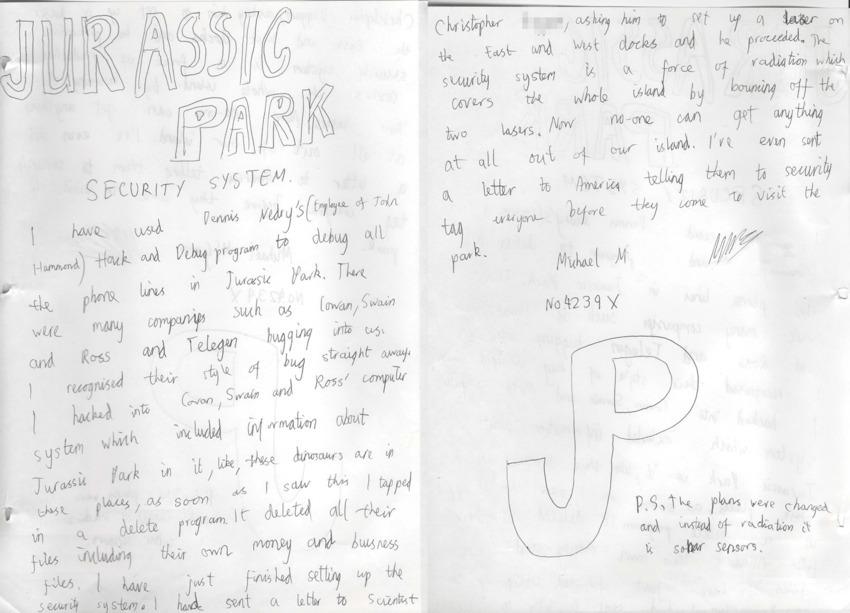 JURASSIC
PARK
SECURITY SYSTEM.
I have used Dennis Nedry's (Employee of John
Hammond) Hack and Debug program to debug all
the phone lines in Jurassic Park. There
were many companies such as Cowan, Swain
and Ross and Telegen bugging into us.
I recognised their style of bug straight away.
I hacked into Cowan, Swain and Ross' computer
system which included information about
Jurassic Park in it, like, these dinosaurs are in
these places, as soon as I saw this I tapped
in a delete program. It deleted all their
files including their own money and buisness
files. I have just finished setting up the
security system. I have sent a letter to Scientist
Christopher , asking him to set up a laser on
the East and West docks and he proceeded. The
security system is a force of radiation which
covers the whole island by bouncing off the
two lasers. Now no-one can get anything
at all out of our island. I've even sent
a letter to America telling them to security
tag everyone before they come to visit the
park.
Michael M.
No4239X
JP
P.S. The plans were changed
and instead of radiation it
is sonar sensors.